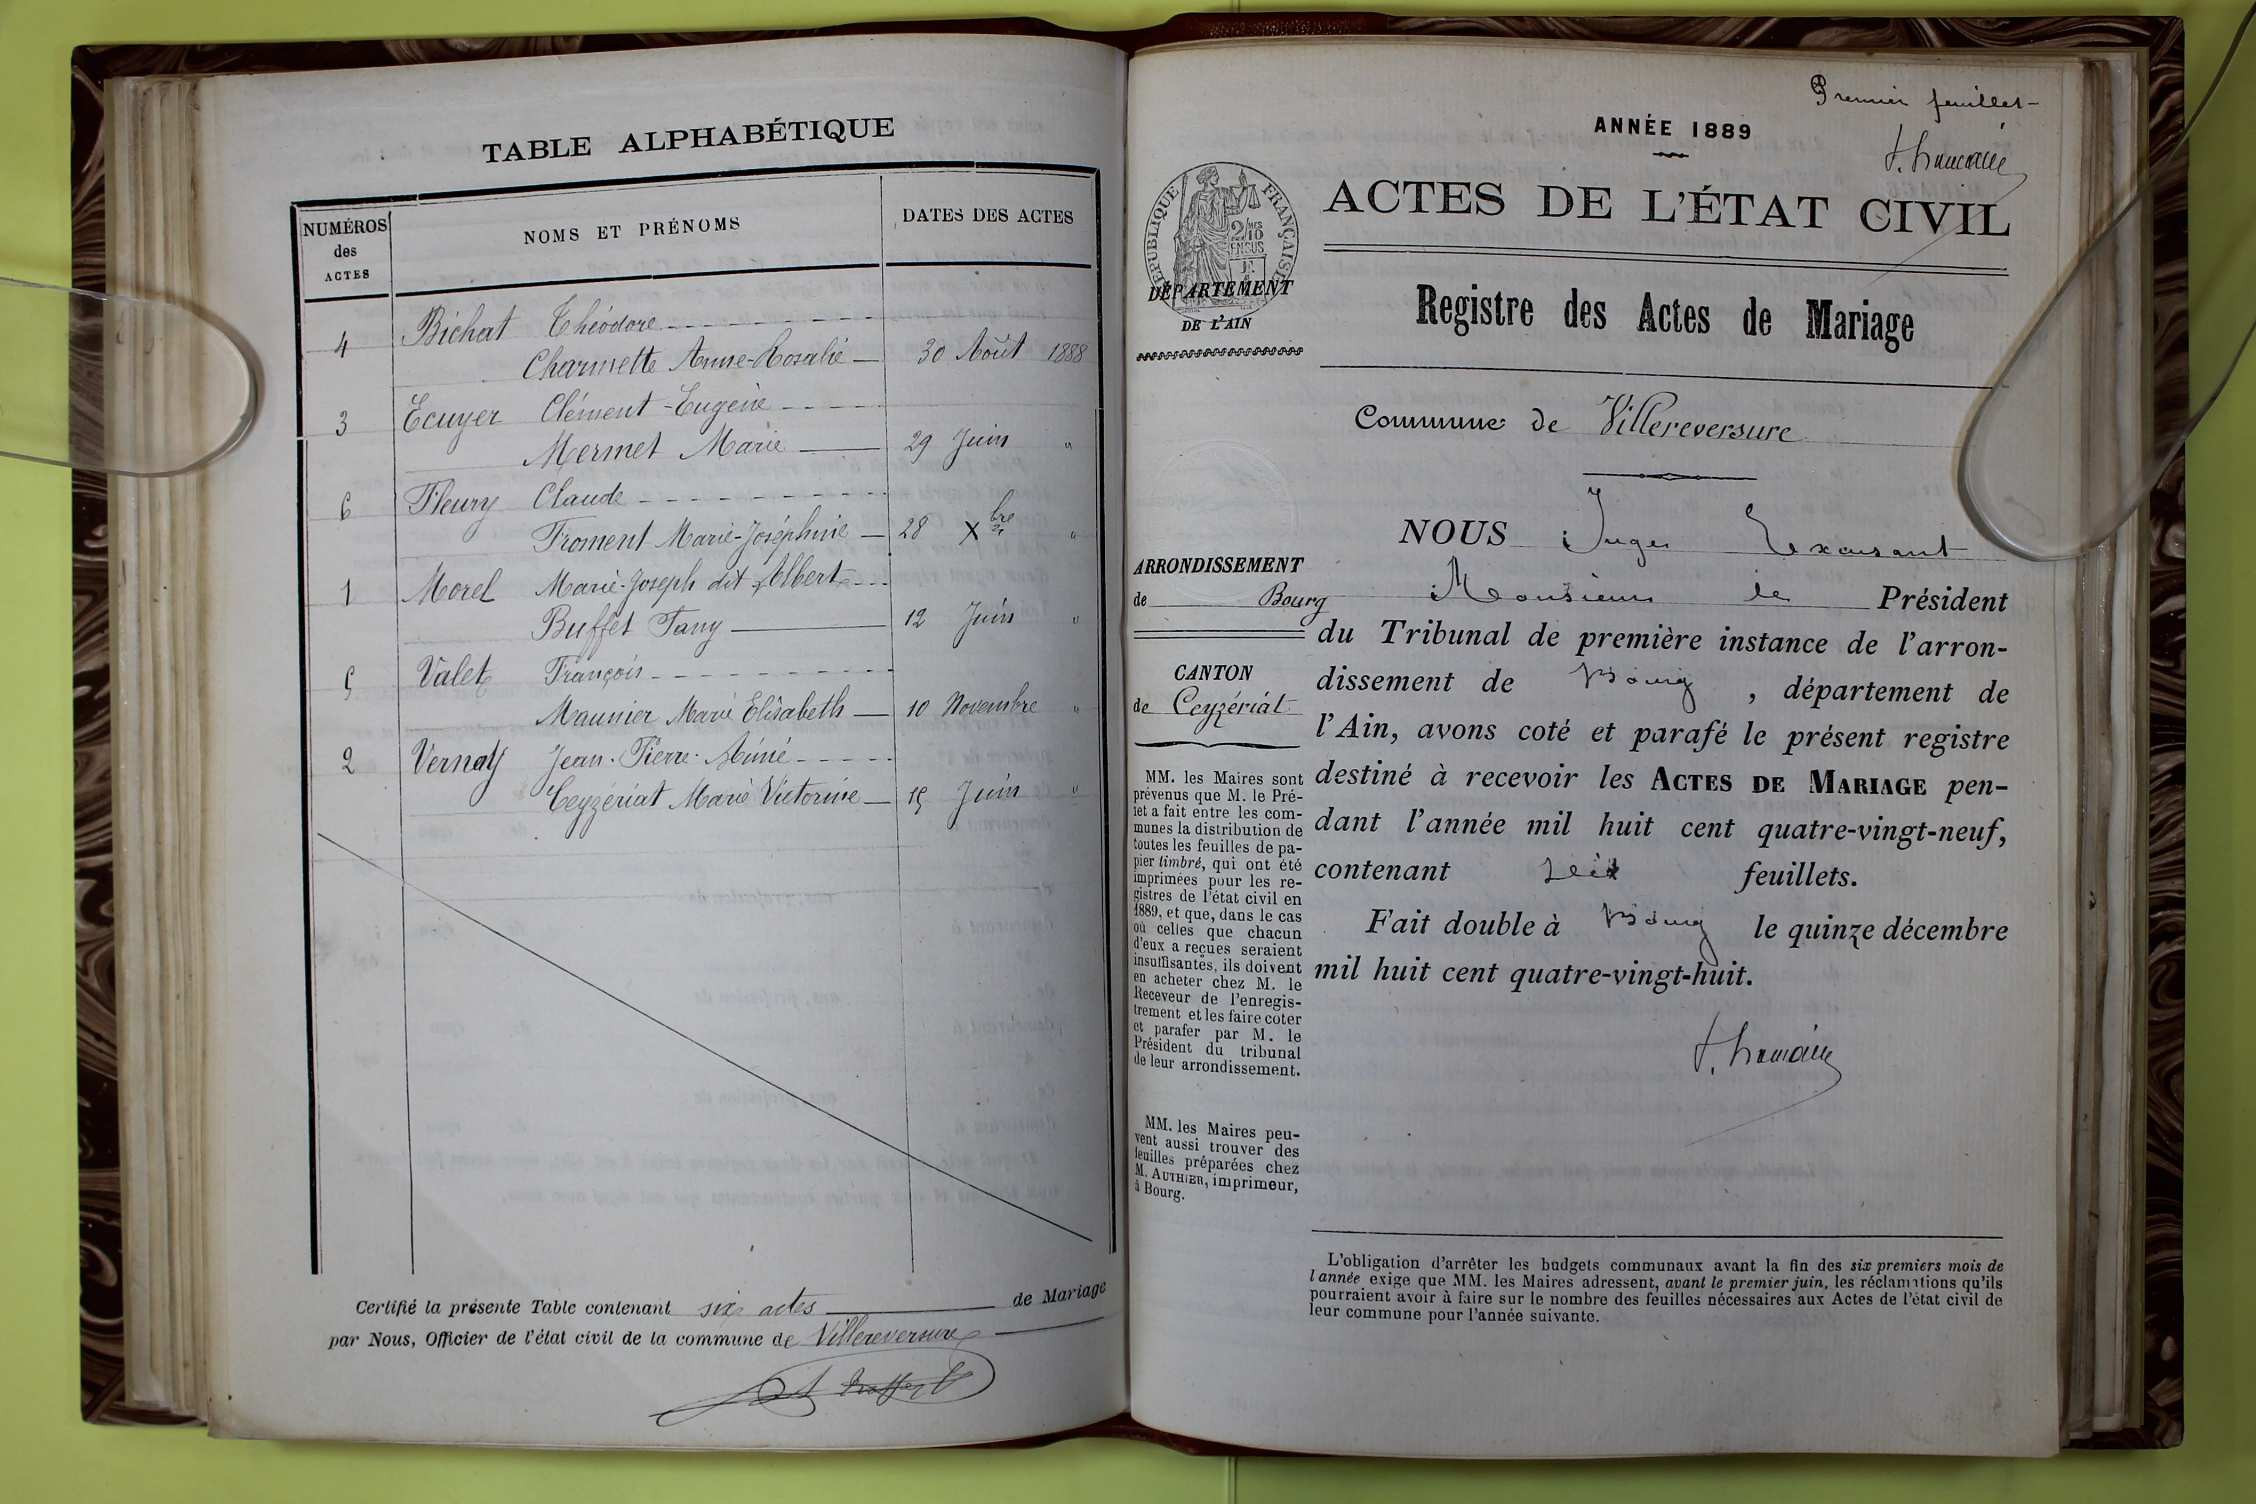 TABLE ALPHABÉTIQUE
NUMÉROS
des
ACTES
NOMS ET PRÉNOMS
DATES DES ACTES
Bichat Théodore
4 Charmette Anne-Rosalie 30 Août 1888
Ecuyer Clément-Eugène
3 Mermet Marie 29 Juin "
Fleury Claude
6 Froment Marie-Joséphine 28 Xbre "
Morel Marie-Joseph dit Albert
1 Buffet Fany 12 Juin "
Valet François
5 Maunier Marie Elisabeth 10 Novembre "
Vernay Jean-Pierre-Aimé
2 Ceyzériat Marie Victorine 15 Juin "
Certifié la présente Table contenant six actes de Mariage
par Nous, Officier de l'état civil de la commune de Villereversure
Premier feuillet
ANNÉE 1889
RÉPUBLIQUE FRANÇAISE
2/10
EN SUS
DÉPARTEMENT
DE L'AIN
ACTES DE L'ÉTAT CIVIL
Registre des Actes de Mariage
Commune de Villereversure
ARRONDISSEMENT
de Bourg
CANTON
de Ceyzériat
MM. les Maires sont
prévenus que M. le Pré-
fet a fait entre les com-
munes la distribution de
toutes les feuilles de pa-
pier timbré, qui ont été
imprimées pour les re-
gistres de l'état civil en
1889, et que, dans le cas
où celles que chacun
d'eux a reçues seraient
insuffisantes, ils doivent
en acheter chez M. le
Receveur de l'enregis-
trement et les faire coter
et parafer par M. le
Président du tribunal
de leur arrondissement.
MM. les Maires peu-
vent aussi trouver des
feuilles préparées chez
M. AUTHIER, imprimeur,
à Bourg.
NOUS Juge
Monsieur le Président
du Tribunal de première instance de l'arron-
dissement de Bourg, département de
l'Ain, avons coté et parafé le présent registre
destiné à recevoir les ACTES DE MARIAGE pen-
dant l'année mil huit cent quatre-vingt-neuf,
contenant feuillets.
Fait double à Bourg le quinze décembre
mil huit cent quatre-vingt-huit.
L'obligation d'arrêter les budgets communaux avant la fin des six premiers mois de
l'année exige que MM. les Maires adressent, avant le premier juin, les réclamations qu'ils
pourraient avoir à faire sur le nombre des feuilles nécessaires aux Actes de l'état civil de
leur commune pour l'année suivante.